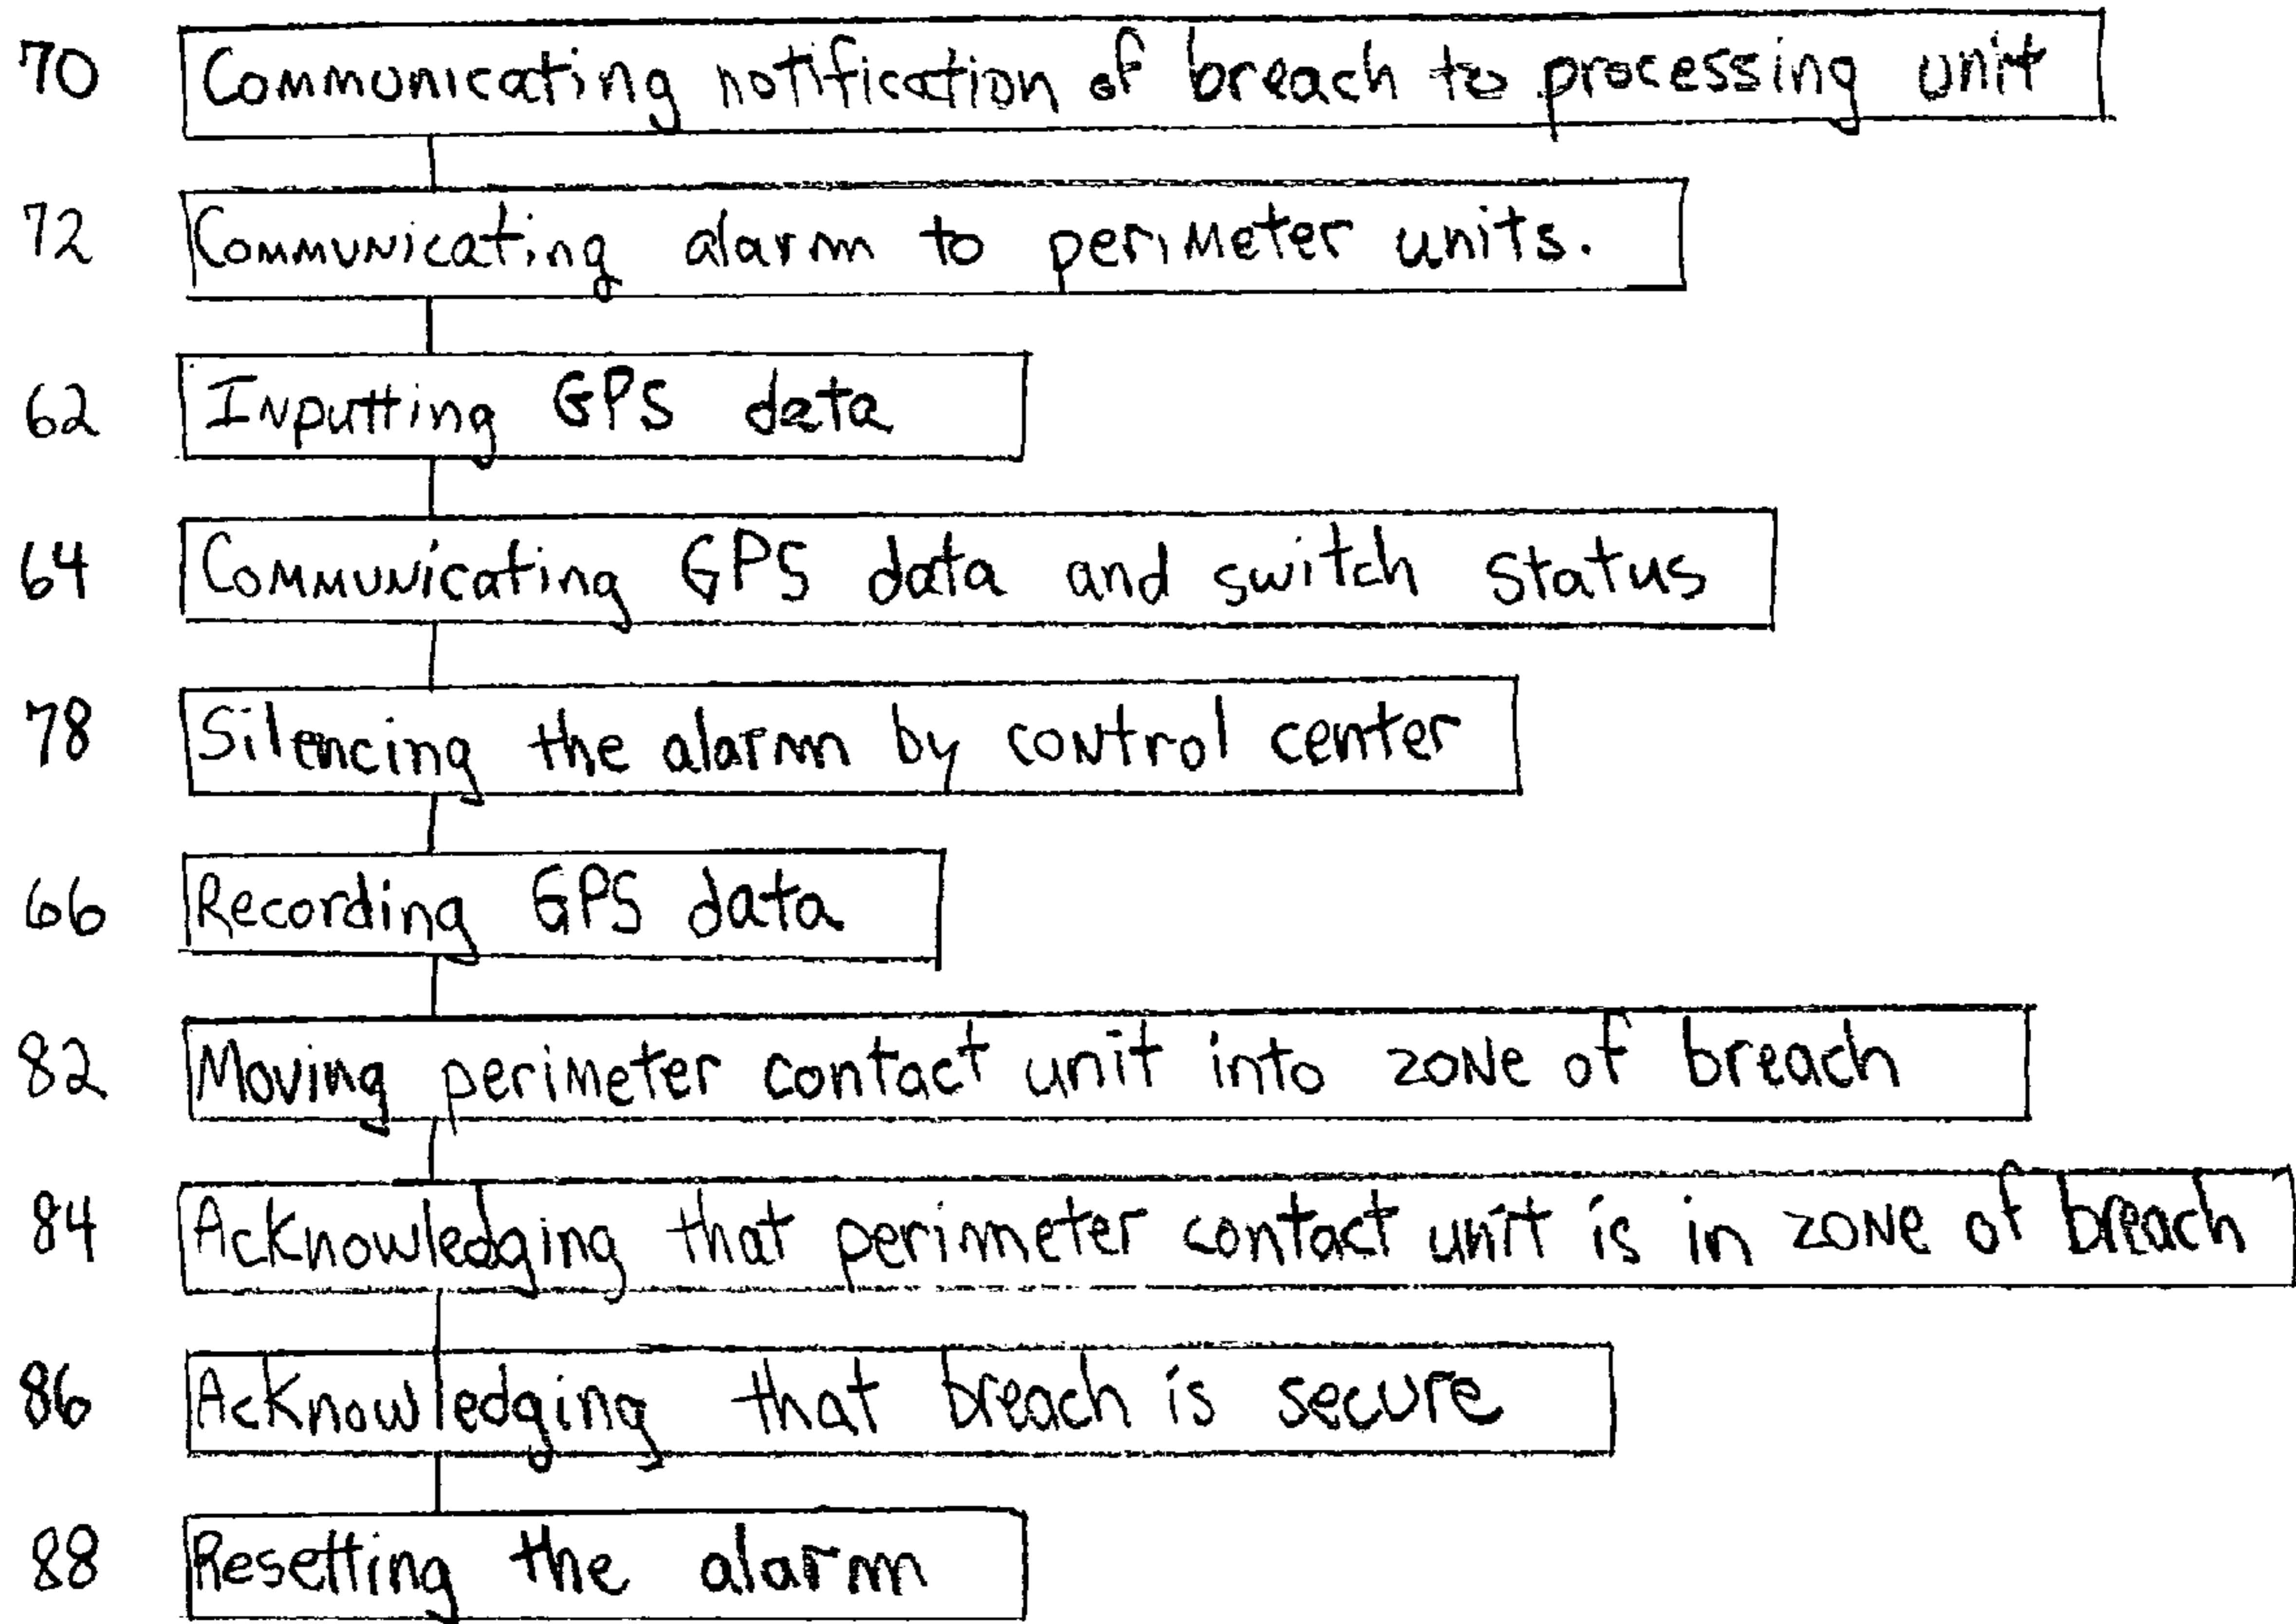 70 Communicating notification of breach to processing unit
72 Communicating alarm to perimeter units.
62 Inputting GPS data
64 Communicating GPS data and switch status
78 Silencing the alarm by control center
66 Recording GPS data
82 Moving perimeter contact unit into zone of breach
84 Acknowledging that perimeter contact unit is in zone of breach
86 Acknowledging that breach is secure
88 Resetting the alarm